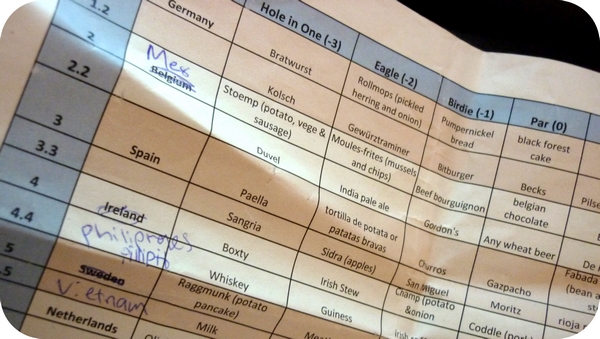 1.2 Germany Hole in One (-3) Eagle (-2) Birdie (-1) Par (0)
2 Bratwurst Rollmops (pickled herring and onion) Pumpernickel bread black forest cake
Mex
2.2 Belgium Kolsch Gewürztraminer Bitburger Becks
Stoemp (potato, vege & sausage) Moules-frites (mussels and chips) Beef bourguignon belgian chocolate
3 Duvel India pale ale Gordon's Any wheat beer
3.3 Spain Paella tortilla de potato or patatas bravas Ourros Gazpacho Fabada
4 Sangria Sidra (apples) San miguel Moritz rioja
4.4 Ireland Boxty Irish Stew Champ (potato &onion Coddle
philiproes
5 Whiskey Guiness
Sweden Raggmunk (potato pancake)
Vietnam
Milk
Netherlands